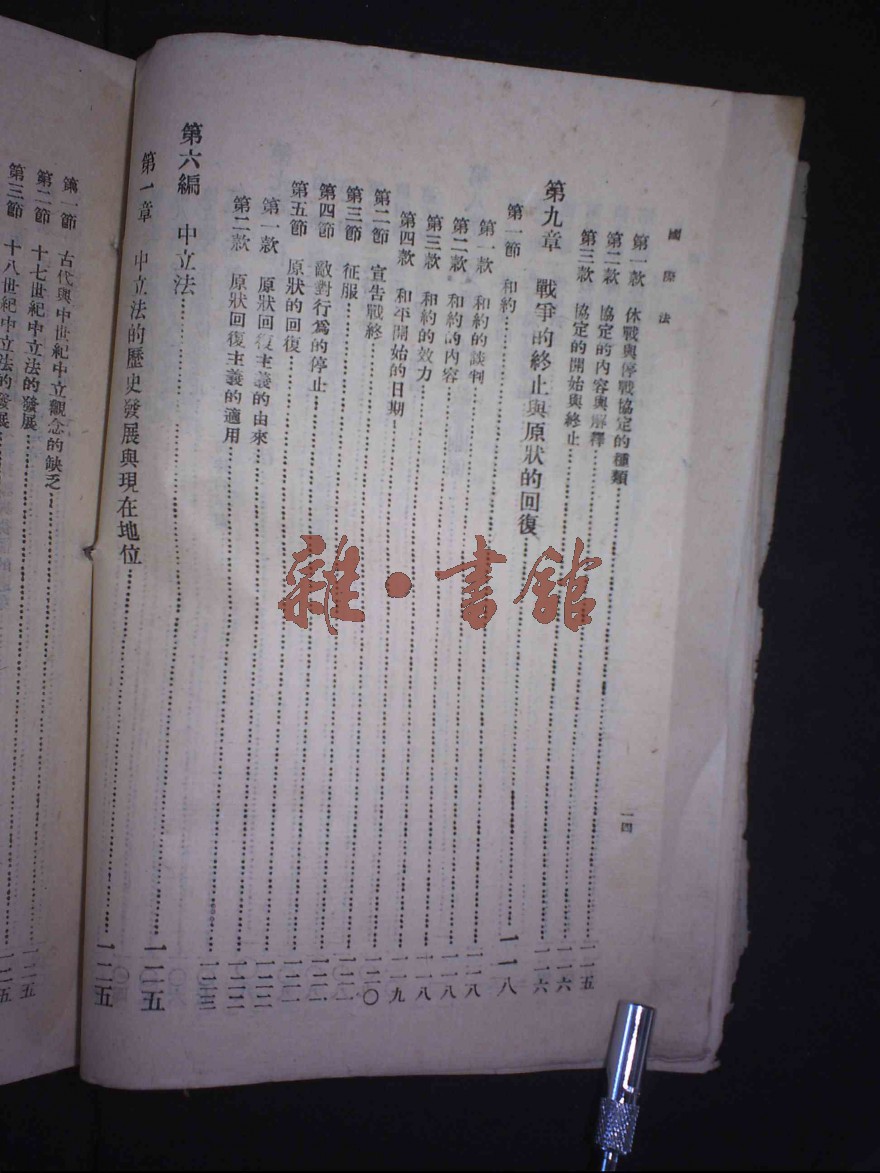 國際法
一四
第一款 休戰與停戰協定的種類……一一五
第二款 協定的內容與解釋……一一六
第三款 協定的開始與終止……一一六
第九章 戰爭的終止與原狀的回復……一一八
第一節 和約……一一八
第一款 和約的談判……一一八
第二款 和約的內容……一一八
第三款 和約的效力……一一九
第四款 和平開始的日期……一二〇
第二節 宣告戰終……一二一
第三節 征服……一二一
第四節 敵對行爲的停止……一二一
第五節 原狀的回復……一二二
第一款 原狀回復主義的由來……一二二
第二款 原狀回復主義的適用……一二三
第六編 中立法……一二五
第一章 中立法的歷史發展與現在地位……一二五
第一節 古代與中世紀中立觀念的缺乏……一二五
第二節 十七世紀中立法的發展……一二五
第三節 十八世紀中立法的發展
雜·書館